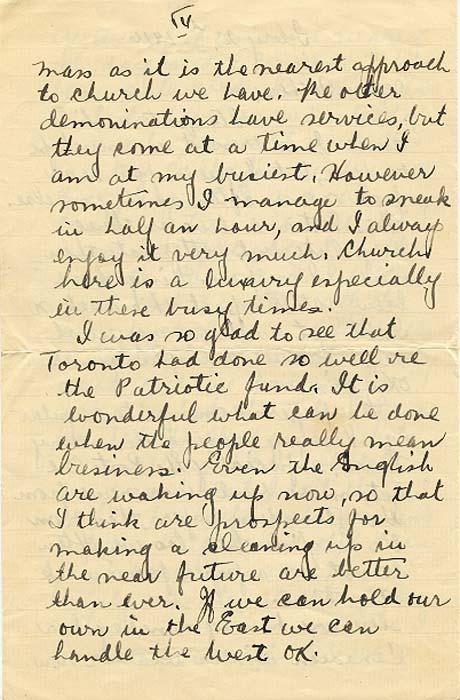 IV
mass as it is the nearest approach
to church we have. The other
demoninations have services, but
they come at a time when I
am at my busiest. However
sometimes I manage to sneak
in half an hour, and I always
enjoy it very much. Church
here is a luxury especially
in these busy times.
I was so glad to see that
Toronto had done so well re
the Patriotic fund. It is
wonderful what can be done
when the people really mean
business. Even the English
are waking up now, so that
I think are prospects for
making a cleaning up in
the near future are better
than ever. If we can hold our
own in the East we can
handle the West OK.